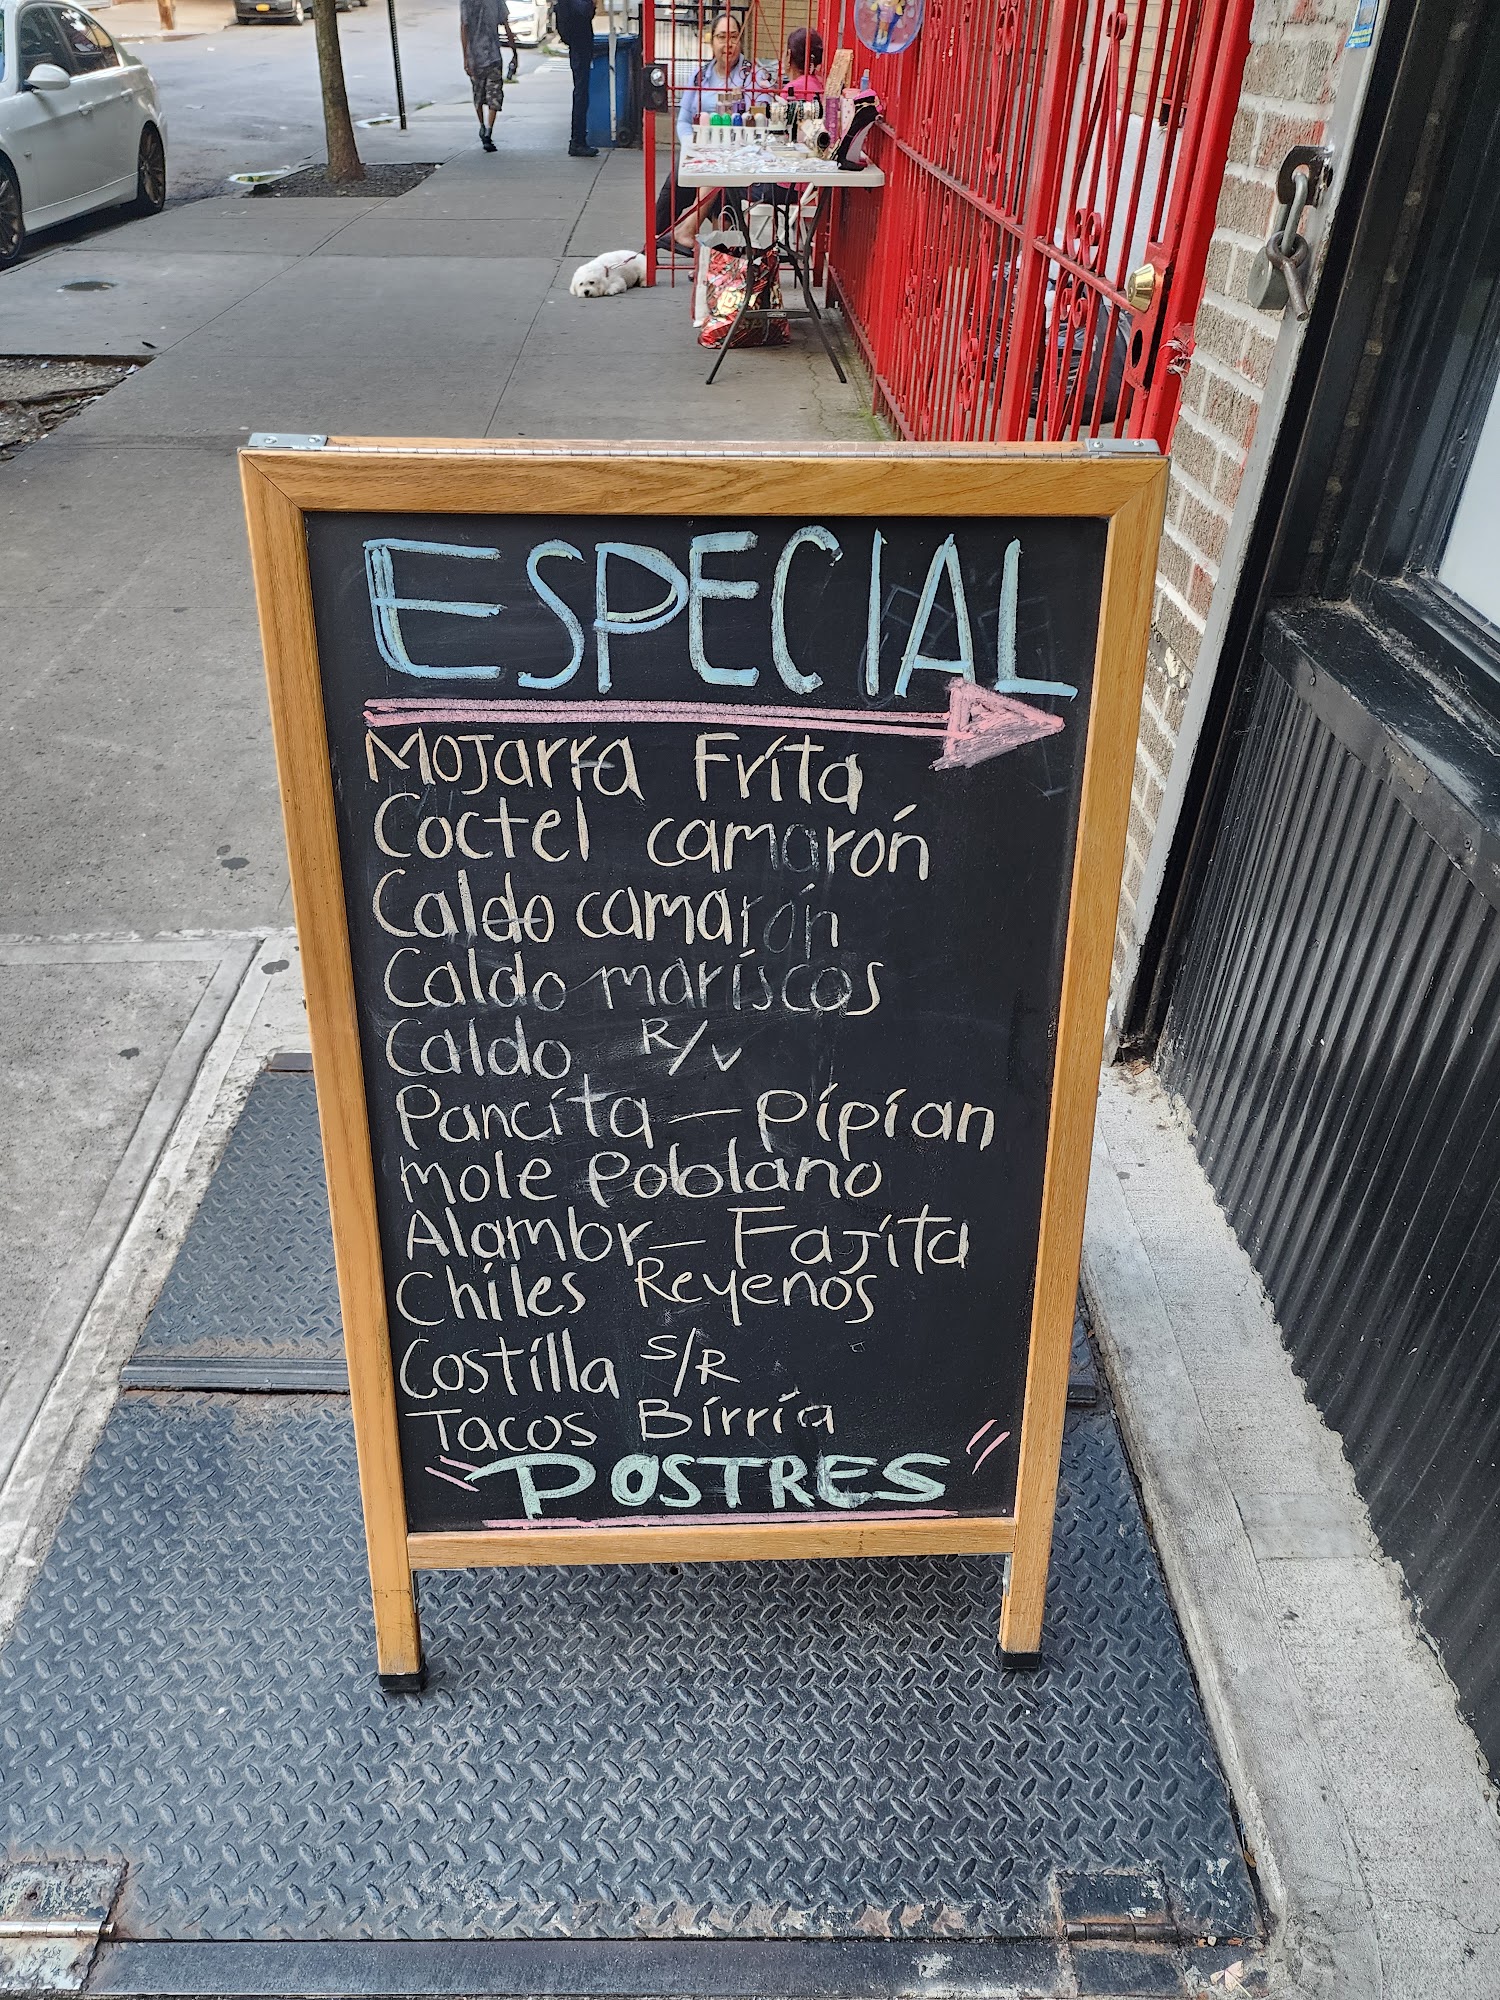 ESPECIAL
Mojarra Frita
Coctel camarón
Caldo camarón
Caldo mariscos
Caldo R/v
Pancita - pipian
mole Poblano
Alambr - Fajita
Chiles Reyenos
Costilla S/R
Tacos Birria
"POSTRES"